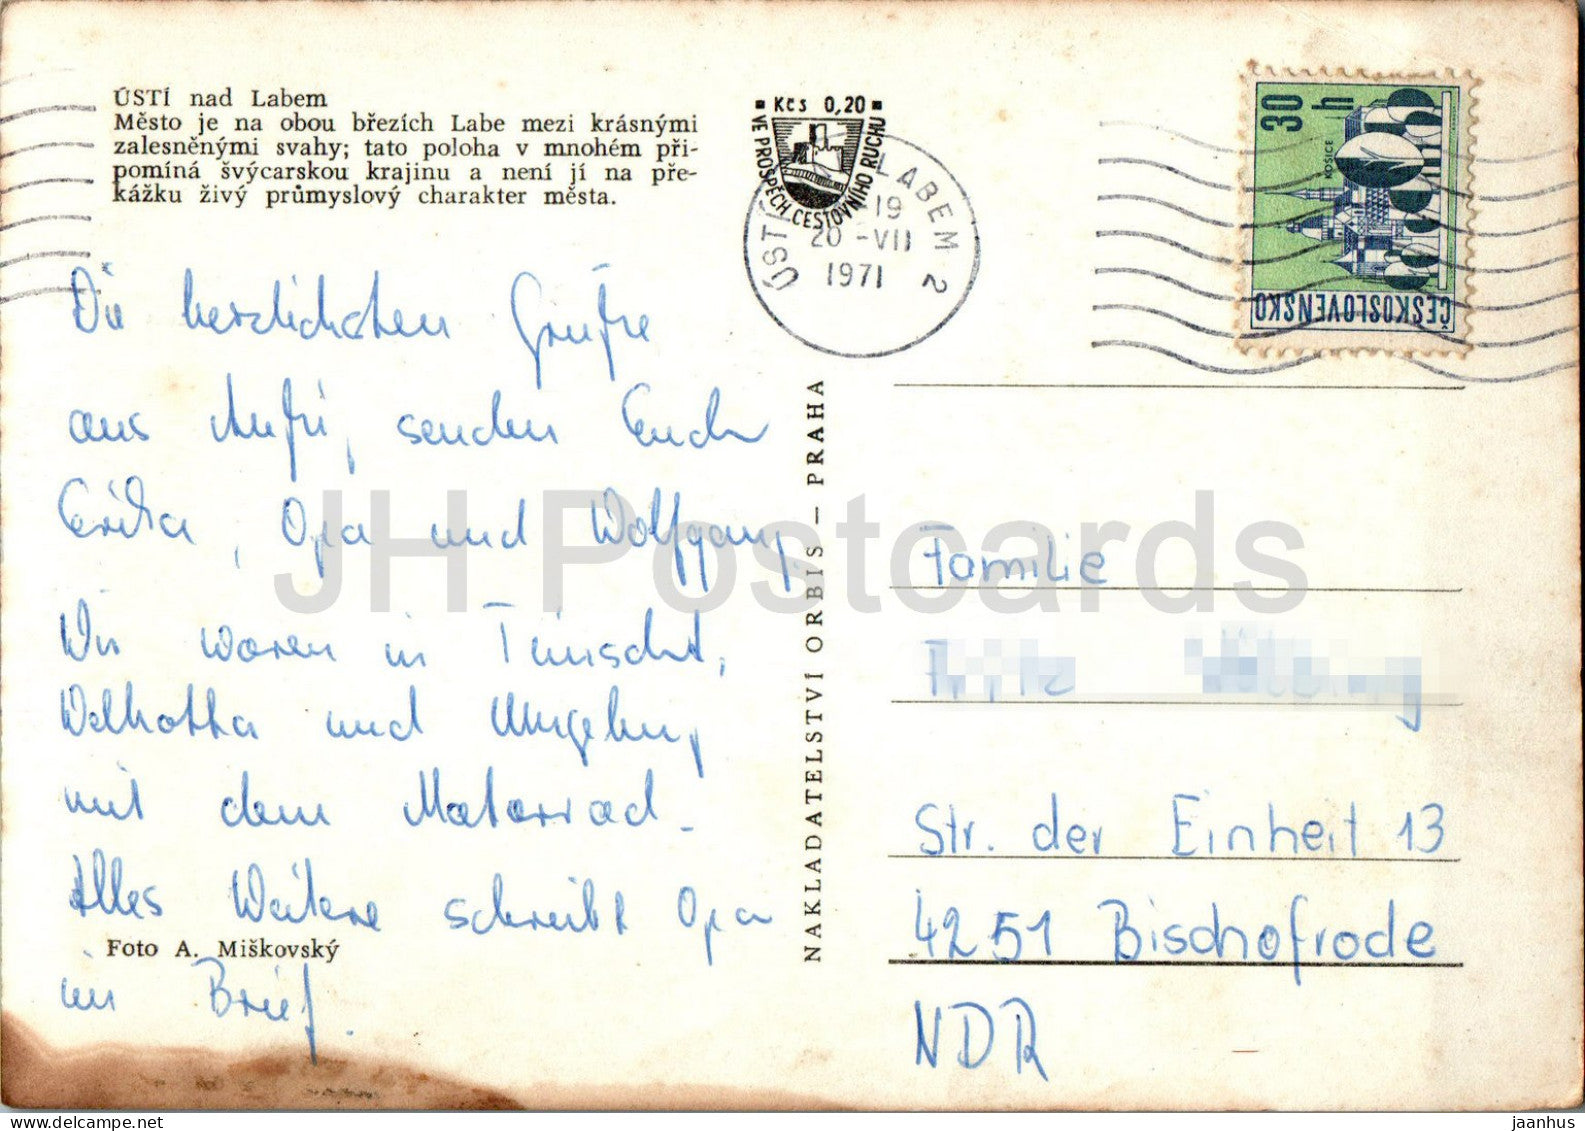 ÚSTÍ nad Labem
Město je na obou březích Labe mezi krásnými
zalesněnými svahy; tato poloha v mnohém při-
pomíná švýcarskou krajinu a není jí na pře-
kážku živý průmyslový charakter města.
Kčs 0,20
VE PROSPĚCH CESTOVNÍHO RUCHU
ÚSTÍ LABEM 2
19
20 -VII
1971
30 h
KOŠICE
ČESKOSLOVENSKO
Die herzlichsten Grüße
aus senden Euch
Erika, Opa und Wolfgang.
Wir waren in
und Umgebung
mit dem Motorrad.
Alles Weitere schreibt Opa
im Brief.
Foto A. Miškovský
NAKLADATELSTVÍ ORBIS – PRAHA
Familie
Str. der Einheit 13
4251 Bischofrode
NDR
JH Postcards
www.delcampe.net
jaanhus